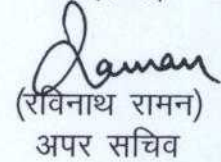 Raman
(रविनाथ रामन)
अपर सचिव